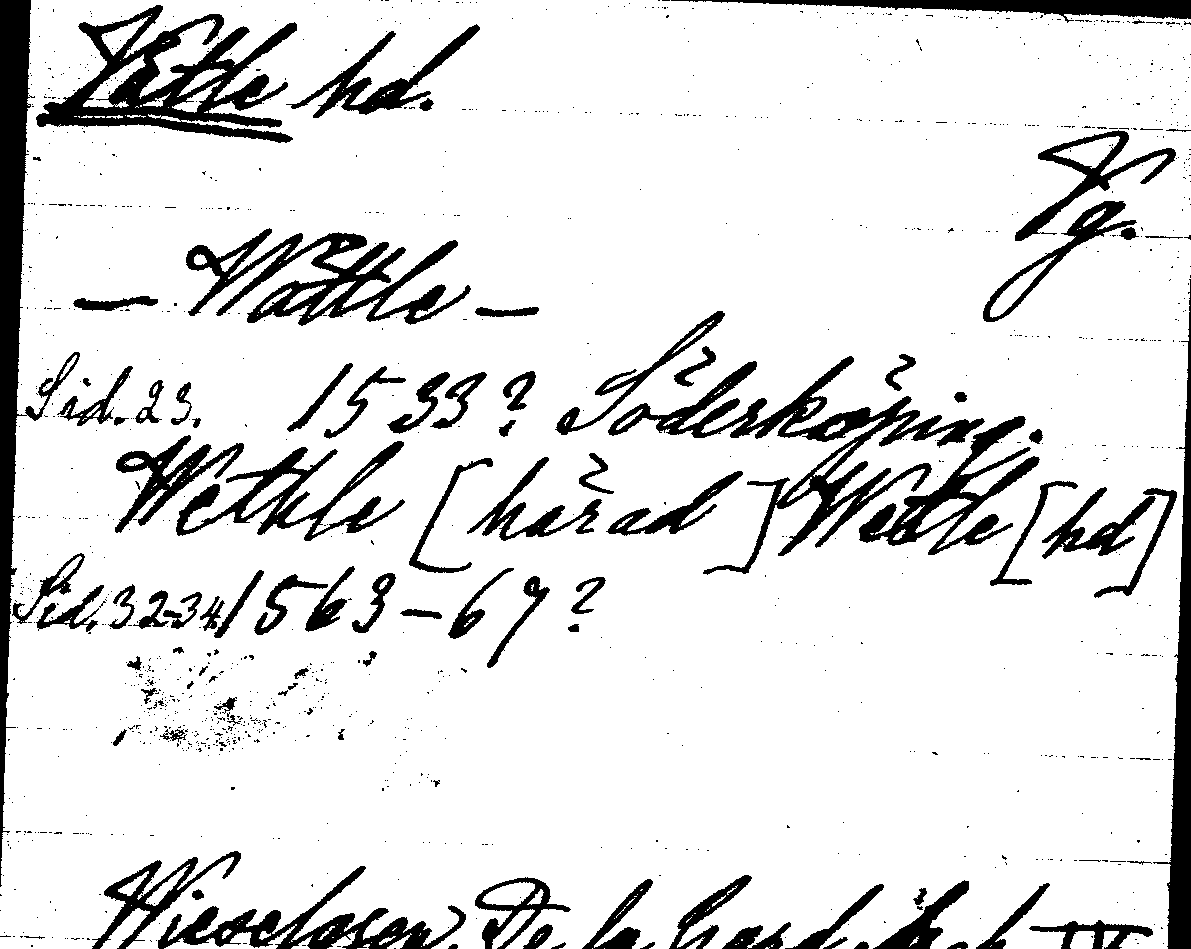 Vättle hd.
Vg.
— Wättle —
Sid. 23. 1533? Söderköping.
Wethle [härad] Wettle [hd]
Sid. 32-34. 1563-67?
De la Gard.